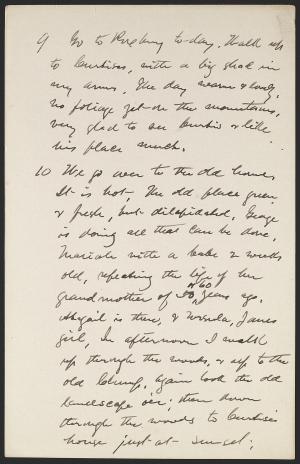 9 Go to Roxbury to-day. Walk up
to Curtises, with a big shad in
my arms. The day warm & lovely,
no foliage yet on the mountains,
very glad to see Curtis & like
his place much.
10 We go over to the old home
It is hot, The old place green
& fresh, but dilapidated, George
is doing all that can be done,
Mariah with a babe 2 weeks
old, repeating the life of her
grandmother of 50 or 60 years ago.
Abigail is there, & Ursula, Janes
girl, In afternoon I walk
up through the woods, & up to the
old Clump, again look the old
landscape oer; then down
through the woods to Curtises
house just at sunset;